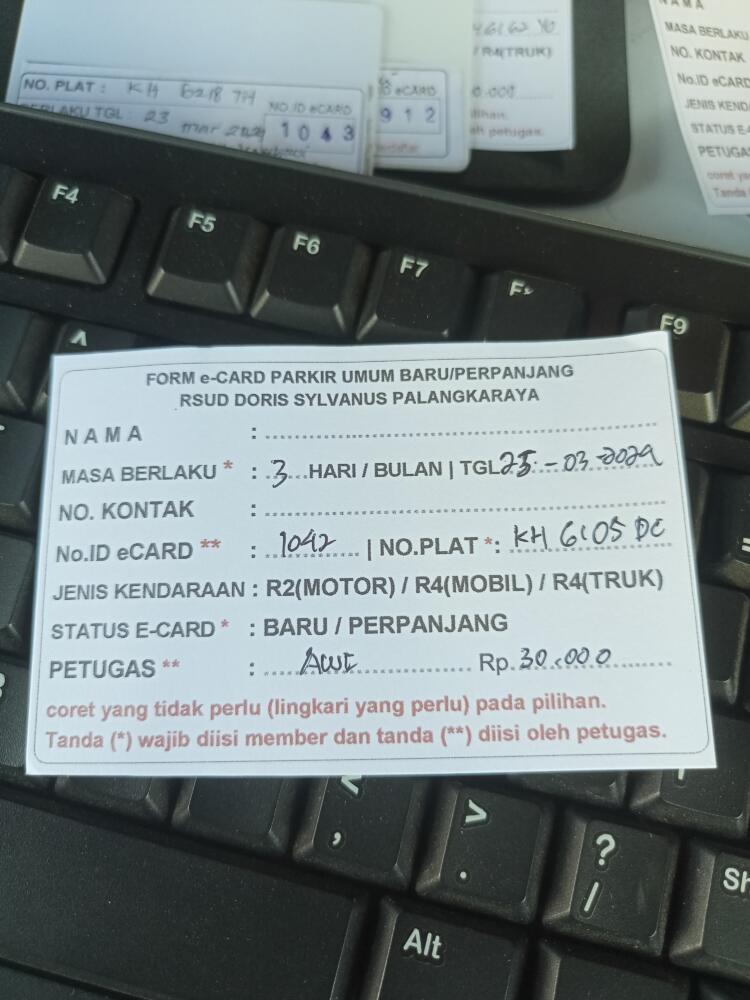 46162 YO
/ R4(TRUK)
0.000
ilihan.
eh petugas.
NO. PLAT : KH 6218 TH
BERLAKU TGL : 23
NO.ID eCARD
1043
eCARD
912
N A M A
MASA BERLAKU
NO. KONTAK
No.ID eCARD
JENIS KEND
STATUS E-
PETUGAS
coret ya
Tanda
F4
F5
F6
F7
F9
FORM e-CARD PARKIR UMUM BARU/PERPANJANG
RSUD DORIS SYLVANUS PALANGKARAYA
N A M A :
MASA BERLAKU * : 3 HARI / BULAN | TGL 25-03-2024
NO. KONTAK :
No.ID eCARD ** : 1042 | NO.PLAT *: KH 6105 DC
JENIS KENDARAAN : R2(MOTOR) / R4(MOBIL) / R4(TRUK)
STATUS E-CARD * : BARU / PERPANJANG
PETUGAS ** : Awi Rp. 30.000
coret yang tidak perlu (lingkari yang perlu) pada pilihan.
Tanda (*) wajib diisi member dan tanda (**) diisi oleh petugas.
< ,
> .
? /
Sh
Alt